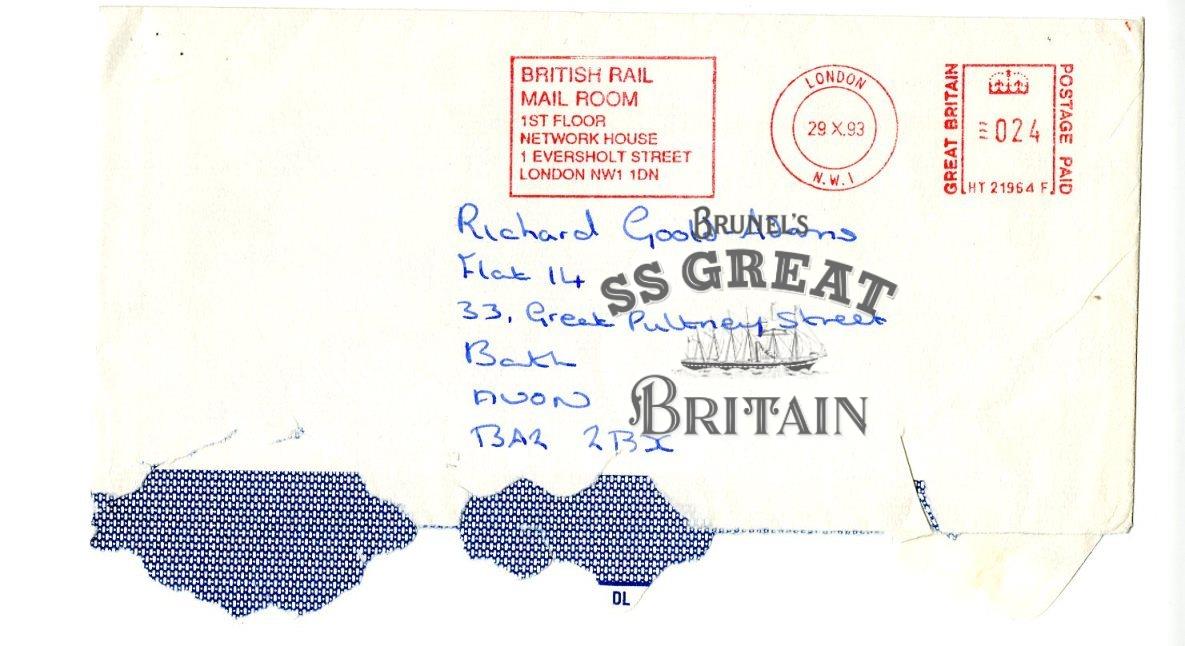 BRITISH RAIL
MAIL ROOM
1ST FLOOR
NETWORK HOUSE
1 EVERSHOLT STREET
LONDON NW1 1DN
LONDON
29 X.93
N.W.1
GREAT BRITAIN
024
HT 21964 F
POSTAGE PAID
Richard Goold-Adams
Flat 14
33, Great Pultney Street
Bath
AVON
BA2 2BX
BRUNEL'S
SS GREAT
BRITAIN
DL